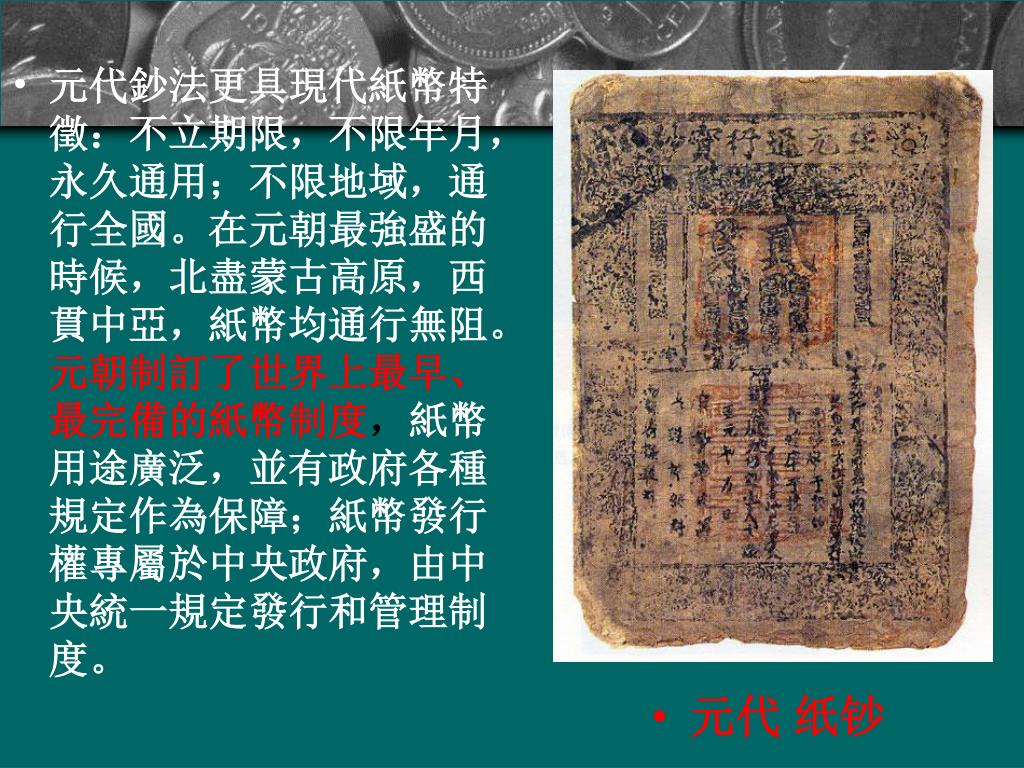 • 元代鈔法更具現代紙幣特
徵：不立期限，不限年月，
永久通用；不限地域，通
行全國。在元朝最強盛的
時候，北盡蒙古高原，西
貫中亞，紙幣均通行無阻。
元朝制訂了世界上最早、
最完備的紙幣制度，紙幣
用途廣泛，並有政府各種
規定作為保障；紙幣發行
權專屬於中央政府，由中
央統一規定發行和管理制
度。
貳
• 元代 纸钞